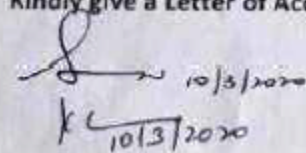 Kindly give a Letter of
10/3/2020
10/3/2020